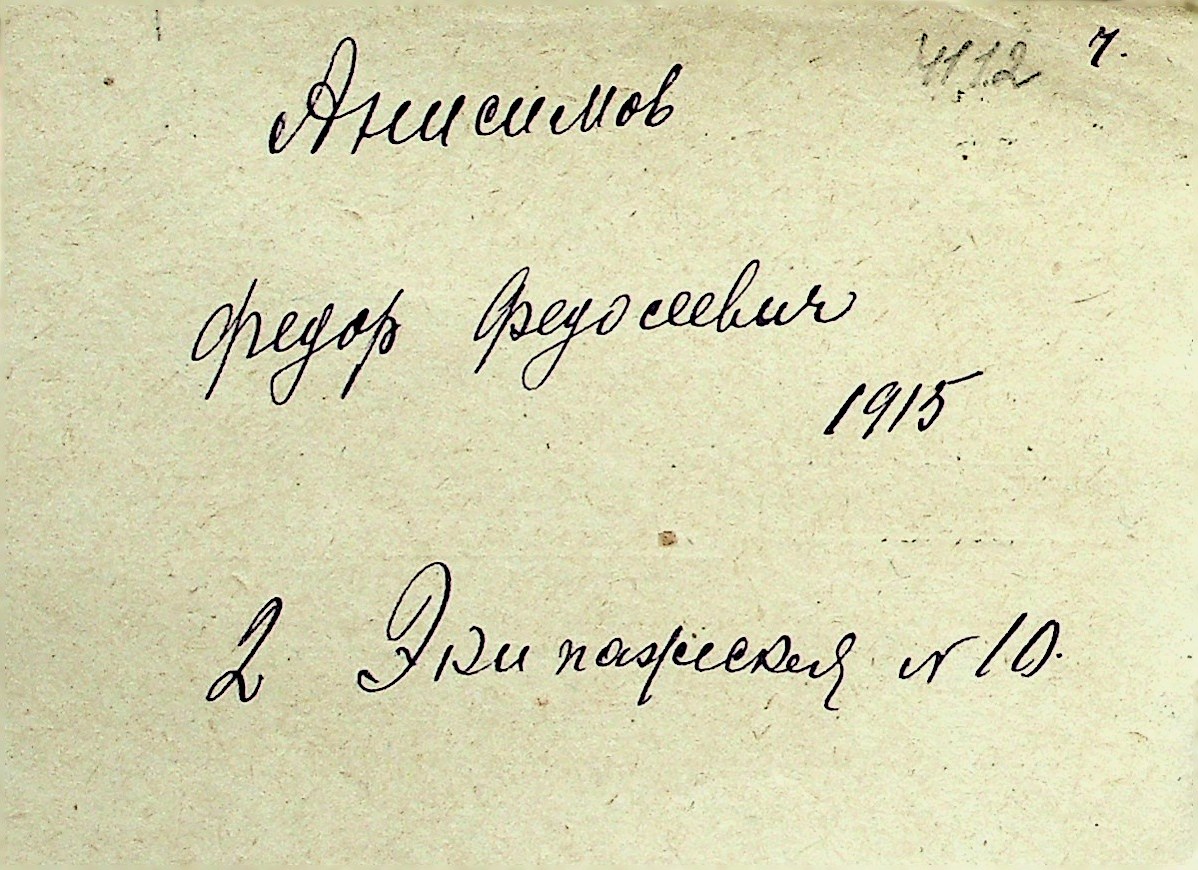 ч.
Анисимов
Федор Федосеевич
1915
2 Экипажеская № 10.